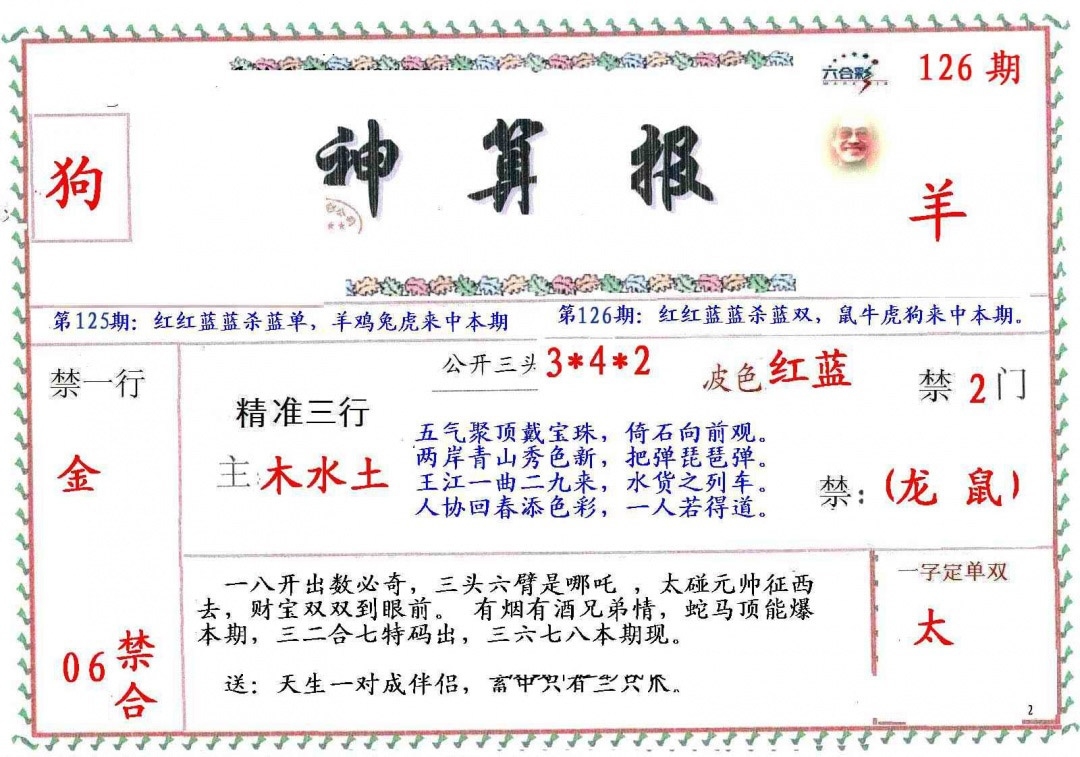 六合彩
126 期
狗
神算报
羊
第125期：红红蓝蓝杀蓝单，羊鸡兔虎来中本期
第126期：红红蓝蓝杀蓝双，鼠牛虎狗来中本期。
禁一行
金
06 禁合
精准三行
主 木水土
公开三头 3*4*2
波色 红蓝
禁 2 门
五气聚顶戴宝珠，倚石向前观。
两岸青山秀色新，把弹琵琶弹。
王江一曲二九来，水货之列车。
人协回春添色彩，一人若得道。
禁：(龙 鼠)
一八开出数必奇，三头六臂是哪吒 ，太碰元帅征西
去，财宝双双到眼前。 有烟有酒兄弟情，蛇马顶能爆
本期，三二合七特码出，三六七八本期现。
送：天生一对成伴侣，
一字定单双
太
2